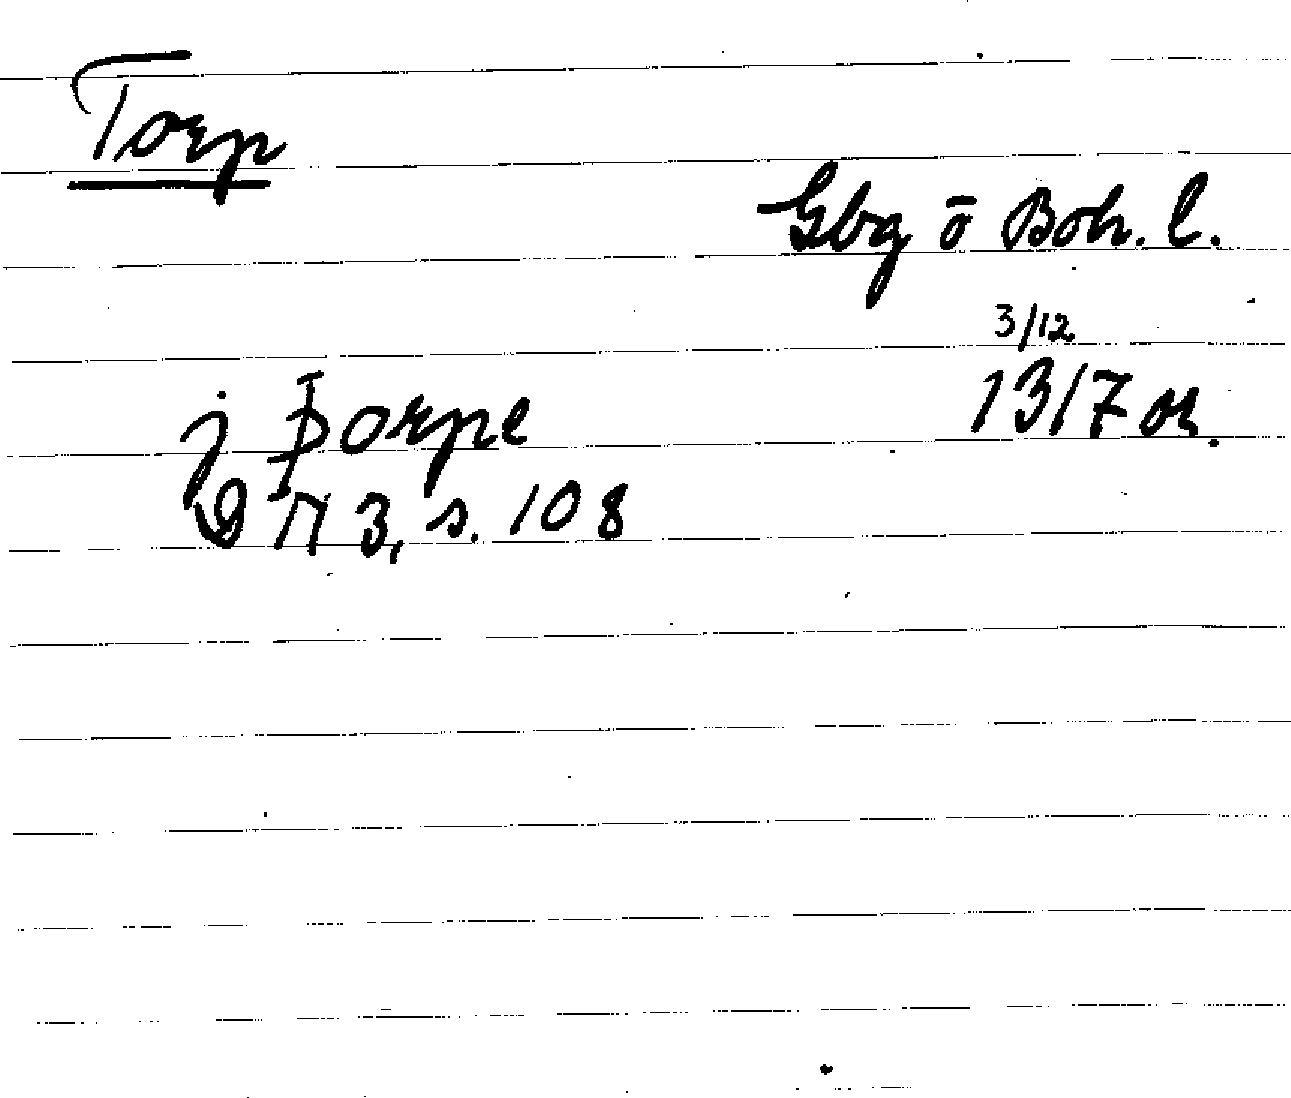 Torp
Gbg ō Boh. l.
3/12
1317 or.
j Þorpe
DN 3, s. 108